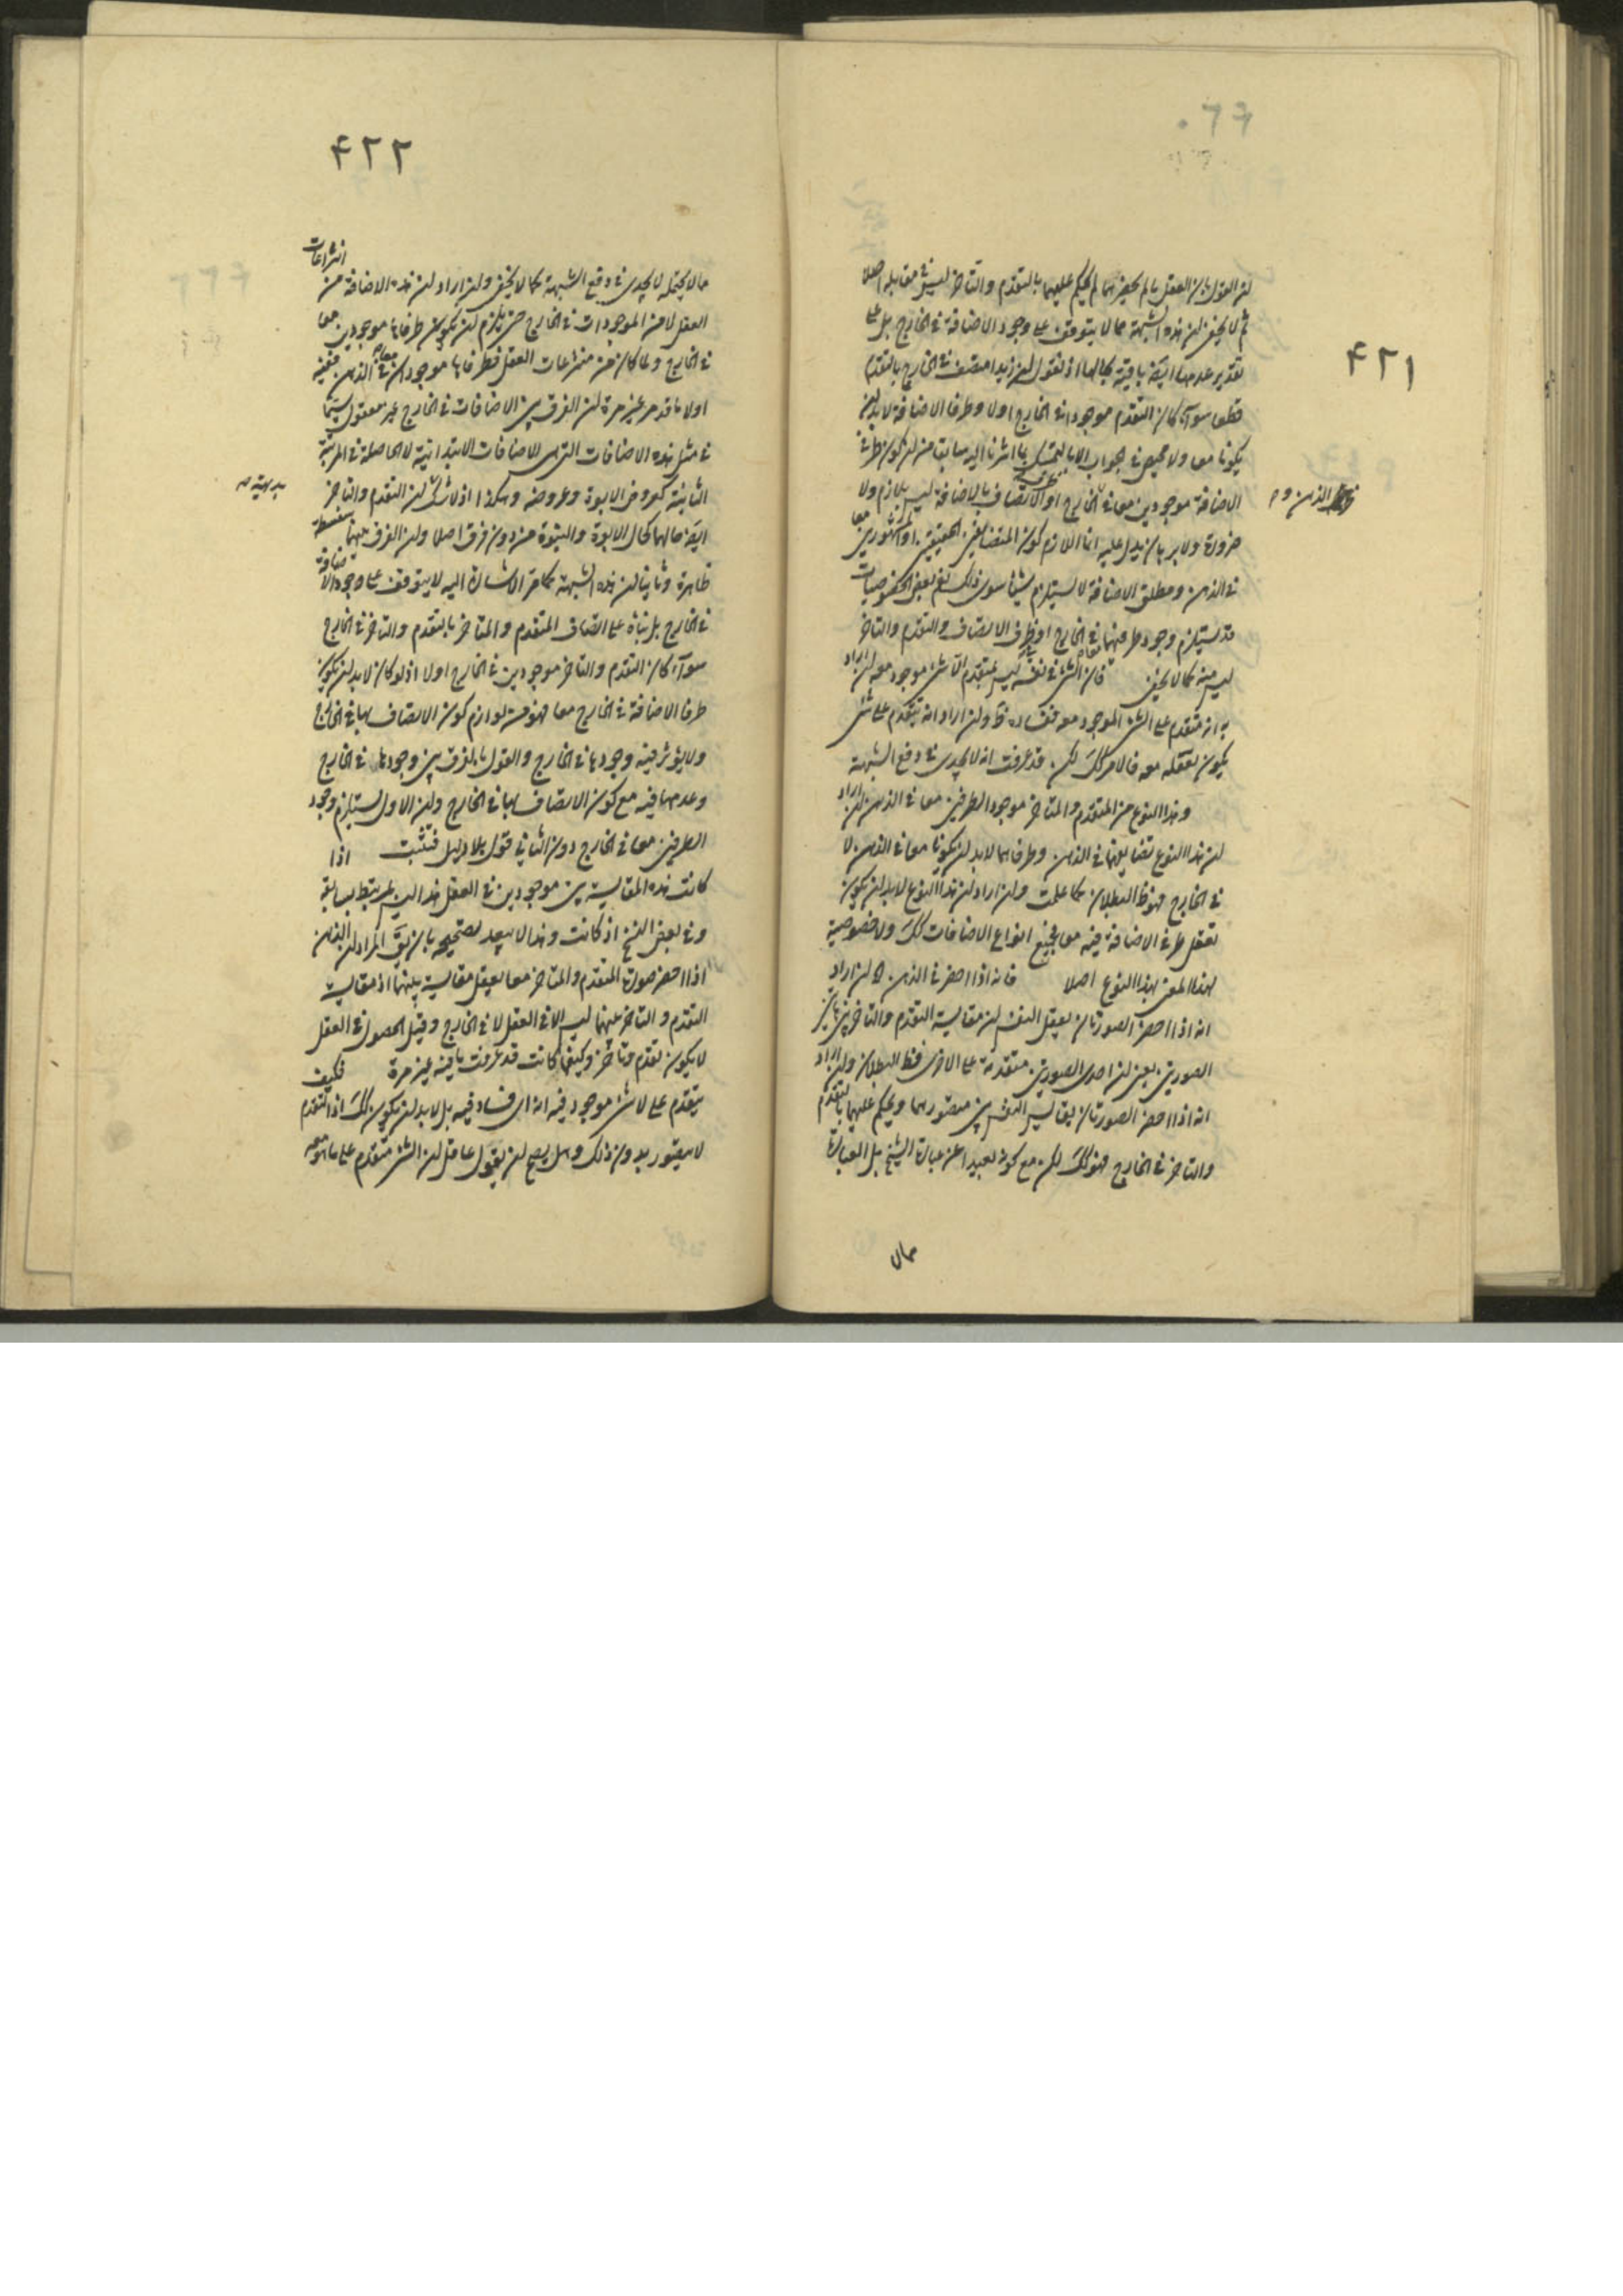 ٤٢١
لان القول بان العقل ما لم يحضرهما لم يحكم عليهما بالتقدم والتاخر ليس في مقابله اصلا
ثم لا يخفى ان هذه الشبهة مما لا يتوقف على وجود الاضافة في الخارج بل على
تقدير عدمها ايضا باقية بحالها اذ نقول ان زيدا متصف في الخارج بالتقدم
قطعا سواء كان التقدم موجودا في الخارج اولا وطرفا الاضافة لابد ان
يكونا معا ولا محيص في الجواب الا بالتمسك بما اشرنا اليه سابقا من ان كون طرفي
الاضافة موجودين معا في الخارج او الاتصاف بالاضافة ليس بلازم ولا
الذهن و
ضرورة ولا برهان يدل عليه انما اللازم كون المتضايفين الحقيقيين او المشهورين معا
في الذهن ومطلق الاضافة لا يستلزم شيئا سوى ذلك نعم بعض الخصوصيات
قد يستلزم وجود طرفيها في الخارج او ظرف الاتصاف والتقدم والتاخر
ليس منه كما لا يخفى فان الشئ في نفسه ليس بمتقدم الا بشئ موجود معه ان اراد
به انه متقدم على الشئ الموجود معه ففساده ظ وان اراد انه يتقدم على شئ
يكون تعقله معه فالامر كك لكن قد عرفت انه لا يجدي في دفع الشبهة
وهذا النوع من المتقدم والمتاخر موجود الطرفين معا في الذهن ان اراد
ان هذا النوع تضايفهما في الذهن وطرفاهما لابد ان يكونا معا في الذهن لا
في الخارج فهو ظ البطلان كما علمت وان اراد ان هذا النوع لابد ان يكون
تعقل طرفي الاضافة فيه معا فجميع انواع الاضافات كك ولا خصوصية
لهذا المعنى بهذا النوع اصلا فانه اذا احضر في الذهن اه ان اراد
انه اذا احضر الصورتان يعقل النفس ان مقايسة التقدم والتاخر بين هاتين
الصورتين يعني ان احدى الصورتين متقدمة على الاخرى فظ البطلان وان اراد
انه اذا احضر الصورتان يقايس النفس بين متصوريهما ويحكم عليهما بالتقدم
والتاخر في الخارج فهو كك لكن مع كونه بعيدا عن عبارة الشيخ بل العبارة
مما لا
٤٢٢
مما لا يحتمله لا يجدي في دفع الشبهة كما لا يخفى وان اراد ان هذه الاضافة من انتزاعات
العقل لا من الموجودات في الخارج حتى يلزم ان يكون طرفاها موجودين معا
في الخارج ولما كان من منتزعات العقل فطرفاها موجودان معا في الذهن ففيه
اولا ما قد مر غير مرة ان الفرق بين الاضافات في الخارج غير معقول سيما
في مثل هذه الاضافات التي هي الاضافات الابتدائية لا الحاصلة في المرتبة
الثانية كعروض الابوة وعروضه وهكذا اذ لا شك ان التقدم والتاخر
بديهية
ايضا حالهما كحال الابوة والبنوة من دون فرق اصلا وان الفرق بينهما سفسطة
ظاهرة وثانيا ان هذه الشبهة كما مر الاشارة اليه لا يتوقف على وجود الاضافة
في الخارج بل بناه على اتصاف المتقدم والمتاخر بالتقدم والتاخر في الخارج
سواء كان التقدم والتاخر موجودين في الخارج اولا اذ لو كان لابد ان يكون
طرفا الاضافة في الخارج معا فهو من لوازم كون الاتصاف بها في الخارج
ولا يؤثر فيه وجودها في الخارج والقول بالفرق بين وجودها في الخارج
وعدمها فيه مع كون الاتصاف بها في الخارج وان الاول يستلزم وجود
الطرفين معا في الخارج دون الثاني قول بلا دليل فتثبت اذا
كانت هذه المقايسة بين موجودين في العقل هذا ليس بمرتبط بسابقه
وفي بعض النسخ اذ كانت وهذا لا يبعد تصحيحه بان يق المراد ان الذهن
اذا احضر صورة المتقدم والمتاخر معا يعقل مقايسة بينهما اذ مقايسة
التقدم والتاخر بينهما ليس الا في العقل لا في الخارج وقبل الحصول في العقل
لا يكون تقدم وتاخر وكيفما كانت قد عرفت ما فيه غير مرة فكيف
يتقدم على لا شئ موجود فيه انه اي فساد فيه بل لابد ان يكون كك اذ التقدم
لا يتصور بدون ذلك وهل يصح ان يقول عاقل ان الشئ متقدم على ما هو معه